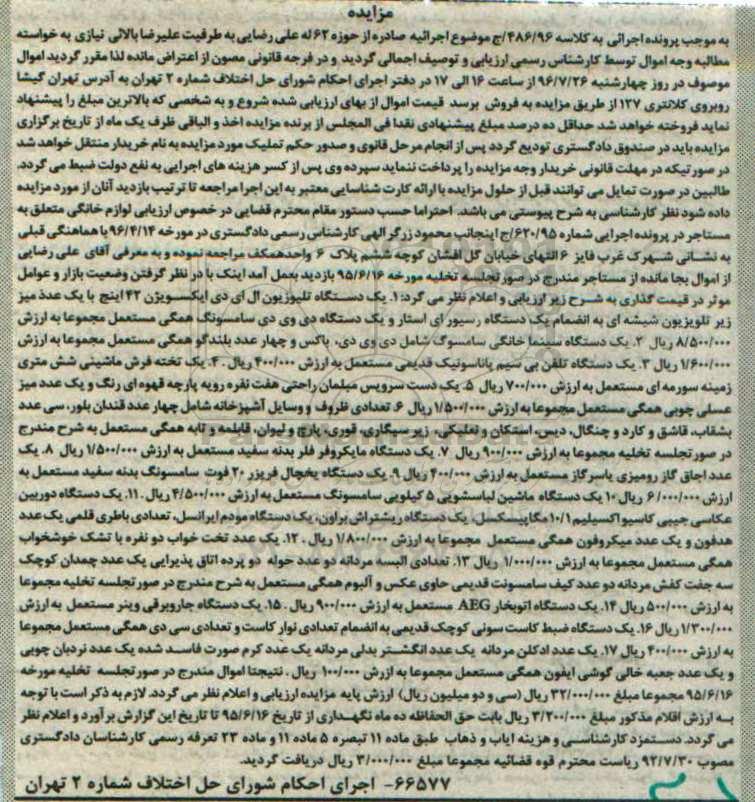 مزایده
به موجب پرونده اجرائی به کلاسه ۴۸۶/۹۶/ج موضوع اجرائیه صادره از حوزه ۶۲ له علی رضایی به طرفیت علیرضا بالائی نیازی به خواسته
مطالبه وجه اموال توسط کارشناس رسمی ارزیابی و توصیف اجمالی گردید و در فرجه قانونی مصون از اعتراض مانده لذا مقرر گردید اموال
موصوف در روز چهارشنبه ۹۶/۷/۲۶ از ساعت ۱۶ الی ۱۷ در دفتر اجرای احکام شورای حل اختلاف شماره ۲ تهران به آدرس تهران گیشا
روبروی کلانتری ۱۳۷ از طریق مزایده به فروش برسد قیمت اموال از بهای ارزیابی شده شروع و به شخصی که بالاترین مبلغ را پیشنهاد
نماید فروخته خواهد شد حداقل ده درصد مبلغ پیشنهادی نقدا فی المجلس از برنده مزایده اخذ و الباقی ظرف یک ماه از تاریخ برگزاری
مزایده باید در صندوق دادگستری تودیع گردد پس از انجام مرحل قانونی و صدور حکم تملیک مورد مزایده به نام خریدار منتقل خواهد شد
در صورتیکه در مهلت قانونی خریدار وجه مزایده را پرداخت ننماید سپرده وی پس از کسر هزینه های اجرایی به نفع دولت ضبط می گردد.
طالبین در صورت تمایل می توانند قبل از حلول مزایده با ارائه کارت شناسایی معتبر به این اجرا مراجعه تا ترتیب بازدید آنان از مورد مزایده
داده شود نظر کارشناسی به شرح پیوستی می باشد. احتراما حسب دستور مقام محترم قضایی در خصوص ارزیابی لوازم خانگی متعلق به
مستاجر در پرونده اجرایی شماره ۶۲۰/۹۵/ج اینجانب محمود زرگر الهی کارشناس رسمی دادگستری در مورخه ۹۶/۴/۱۴ با هماهنگی قبلی
به نشانی شهرک غرب فایز ۶ انتهای خیابان گل افشان کوچه ششم پلاک ۶ واحد همکف مراجعه نموده و به معرفی آقای علی رضایی
از اموال بجا مانده از مستاجر مندرج در صورتجلسه تخلیه مورخه ۹۵/۶/۱۶ بازدید بعمل آمد اینک با در نظر گرفتن وضعیت بازار و عوامل
موثر در قیمت گذاری به شرح زیر ارزیابی و اعلام نظر می گردد: ۱. یک دستگاه تلیوزیون ال ای دی ایکسویژن ۴۲ اینچ با یک عدد میز
زیر تلویزیون شیشه ای به انضمام یک دستگاه رسیور ای استار و یک دستگاه دی وی دی سامسونگ همگی مستعمل مجموعا به ارزش
۸/۵۰۰/۰۰۰ ریال ۲. یک دستگاه سینما خانگی سامسونگ شامل دی وی دی، باکس و چهار عدد بلندگو همگی مستعمل مجموعا به ارزش
۱/۶۰۰/۰۰۰ ریال ۳. یک دستگاه تلفن بی سیم پاناسونیک قدیمی مستعمل به ارزش ۴۰۰/۰۰۰ ریال . ۴. یک تخته فرش ماشینی شش متری
زمینه سورمه ای مستعمل به ارزش ۷۰۰/۰۰۰ ریال ۵. یک دست سرویس مبلمان راحتی هفت نفره رویه پارچه قهوه ای رنگ و یک عدد میز
عسلی چوبی همگی مستعمل مجموعا به ارزش ۱/۵۰۰/۰۰۰ ریال ۶. تعدادی ظروف و وسایل آشپزخانه شامل چهار عدد قندان بلور، سی عدد
بشقاب، قاشق و کارد و چنگال، دیس، استکان و نعلبکی، زیر سیگاری، قوری، پارچ و لیوان، قابلمه و تابه همگی مستعمل به شرح مندرج
در صورتجلسه تخلیه مجموعا به ارزش ۹۰۰/۰۰۰ ریال ۷. یک دستگاه مایکروفر فلر بدنه سفید مستعمل به ارزش ۱/۵۰۰/۰۰۰ ریال ۸. یک
عدد اجاق گاز رومیزی یاسر گاز مستعمل به ارزش ۴۰۰/۰۰۰ ریال ۹. یک دستگاه یخچال فریزر ۲۰ فوت سامسونگ بدنه سفید مستعمل به
ارزش ۶/۰۰۰/۰۰۰ ریال ۱۰ یک دستگاه ماشین لباسشویی ۵ کیلویی سامسونگ مستعمل به ارزش ۴/۵۰۰/۰۰۰ ریال . ۱۱. یک دستگاه دوربین
عکاسی جیبی کاسیو اکسیلیم ۱۰/۱ مگاپیسکسل، یک دستگاه ریشتراش براون، یک دستگاه مودم ایرانسل، تعدادی باطری قلمی یک عدد
هدفون و یک عدد میکروفون همگی مستعمل مجموعا به ارزش ۱/۸۰۰/۰۰۰ ریال . ۱۲. یک عدد تخت خواب دو نفره با تشک خوشخواب
همگی مستعمل مجموعا به ارزش ۱/۰۰۰/۰۰۰ ریال ۱۳. تعدادی البسه مردانه دو عدد حوله دو پرده اتاق پذیرایی یک عدد چمدان کوچک
سه جفت کفش مردانه دو عدد کیف سامسونت قدیمی حاوی عکس و آلبوم همگی مستعمل به شرح مندرج در صورتجلسه تخلیه مجموعا
به ارزش ۵۰۰/۰۰۰ ریال ۱۴. یک دستگاه اتوبخار AEG مستعمل به ارزش ۹۰۰/۰۰۰ ریال . ۱۵. یک دستگاه جاروبرقی وینر مستعمل به ارزش
۱/۳۰۰/۰۰۰ ریال ۱۶. یک دستگاه ضبط کاست سونی کوچک قدیمی به انضمام تعدادی نوار کاست و تعدادی سی دی همگی مستعمل مجموعا
به ارزش ۴۰۰/۰۰۰ ریال ۱۷. یک عدد ادکلن مردانه یک عدد انگشتر بدلی مردانه یک عدد کرم صورت فاسد شده یک عدد نردبان چوبی
و یک عدد جعبه خالی گوشی ایفون همگی مستعمل مجموعا به ارزش ۱۰۰/۰۰۰ ریال . نتیجتا اموال مندرج در صورتجلسه تخلیه مورخه
۹۵/۶/۱۶ مجموعا مبلغ ۳۲/۰۰۰/۰۰۰ ریال (سی و دو میلیون ریال) ارزش پایه مزایده ارزیابی و اعلام نظر می گردد. لازم به ذکر است با توجه
به ارزش اقلام مذکور مبلغ ۳/۲۰۰/۰۰۰ ریال بابت حق الحفاظه ده ماه نگهداری از تاریخ ۹۵/۶/۱۶ تا تاریخ این گزارش برآورد و اعلام نظر
می گردد. دستمزد کارشناسی و هزینه ایاب و ذهاب طبق ماده ۱۱ تبصره ۵ ماده ۱۱ و ماده ۲۳ تعرفه رسمی کارشناسان دادگستری
مصوب ۹۲/۷/۳۰ ریاست محترم قوه قضائیه مجموعا مبلغ ۳/۰۰۰/۰۰۰ ریال دریافت گردید.
۶۶۵۷۷- اجرای احکام شورای حل اختلاف شماره ۲ تهران